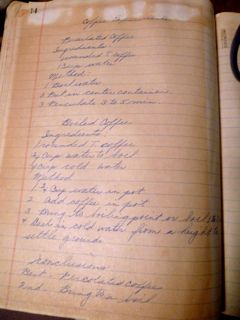 14
Coffee Experiments
Percolated Coffee
Ingredients:
1 rounded T. coffee
1 cup water
Method:
1 Boil water
2 Put in center container
3 Percolate 3 to 5 min.
Boiled Coffee
Ingredients:
1 rounded T. coffee
3/4 cup water to boil
1/4 cup cold water
Method
1 3/4 cup water in pot
2 Add coffee in pot
3 Bring to boiling point or boil
4 Dash in cold water from a height to
settle grounds
Conclusions:
Best - Percolated coffee
2nd. Bring to a boil